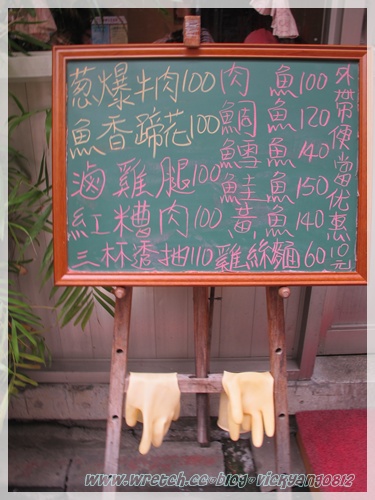 葱爆牛肉100
魚香蹄花100
滷雞腿100
紅糟肉100
三杯透抽110
肉魚100
鯛魚120
鱈魚140
鮭魚150
黃魚140
雞絲麵60
外帶便當优惠10元
www.wretch.cc/blog/vickyang0812